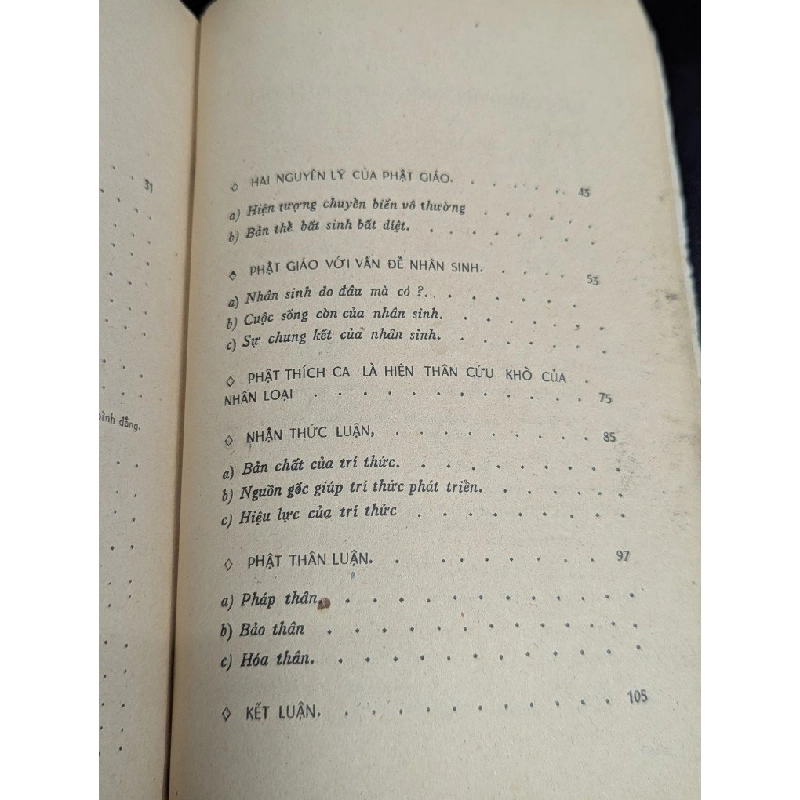 31
bình đẳng.
◇ HAI NGUYÊN LÝ CỦA PHẬT GIÁO. . . . . . . 45
a) Hiện tượng chuyển biến vô thường . . . . .
b) Bản thể bất sinh bất diệt. . . . . . . .
◇ PHẬT GIÁO VỚI VẤN ĐỀ NHÂN SINH. . . . . . 53
a) Nhân sinh do đâu mà có ?. . . . . . . .
b) Cuộc sống còn của nhân sinh. . . . . . .
c) Sự chung kết của nhân sinh. . . . . . .
◇ PHẬT THÍCH CA LÀ HIỆN THÂN CỨU KHỔ CỦA
NHÂN LOẠI . . . . . . . . . . . 75
◇ NHẬN THỨC LUẬN, . . . . . . . . 85
a) Bản chất của trí thức. . . . . . . . .
b) Nguồn gốc giúp trí thức phát triển. . . . . .
c) Hiệu lực của trí thức . . . . . . . .
◇ PHẬT THÂN LUẬN. . . . . . . . . 97
a) Pháp thân. . . . . . . . . . . .
b) Bảo thân . . . . . . . . . . . .
c) Hóa thân. . . . . . . . . . . .
◇ KẾT LUẬN. . . . . . . . . . . 105